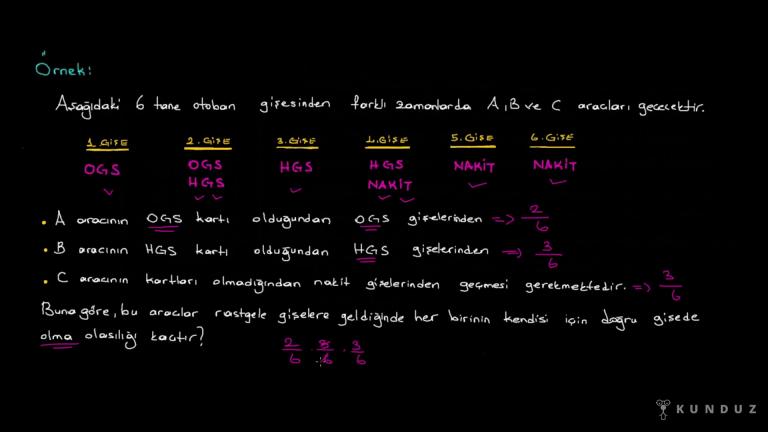 Örnek:
Aşağıdaki 6 tane otoban gişesinden farklı zamanlarda A, B ve C araçları geçecektir.
1. GİŞE 2. GİŞE 3. GİŞE 4. GİŞE 5. GİŞE 6. GİŞE
OGS OGS HGS HGS NAKİT NAKİT
HGS NAKİT
• A aracının OGS kartı olduğundan OGS gişelerinden => 2/6
• B aracının HGS kartı olduğundan HGS gişelerinden => 3/6
• C aracının kartları olmadığından nakit gişelerinden geçmesi gerekmektedir. => 3/6
Buna göre, bu araçlar rastgele gişelere geldiğinde her birinin kendisi için doğru gişede
olma olasılığı kaçtır?
2/6 · 3/6 · 3/6
KUNDUZ